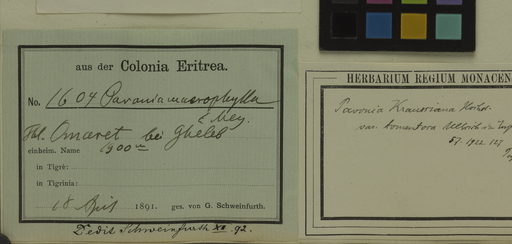 aus der Colonia Eritrea.
No. 1604 Pavonia macrophylla
E. Mey.
Thl. Omaret bei Gheleb
einheim. Name 1900 m
in Tigrè:
in Tigrinia:
18 April 1891. ges. von G. Schweinfurth.
Dedit Schweinfurth XII. 92.
HERBARIUM REGIUM MONACEN
Pavonia Kraussiana Hochst.
var. tomentosa Ulbrich in Engl
57. 1922. 127